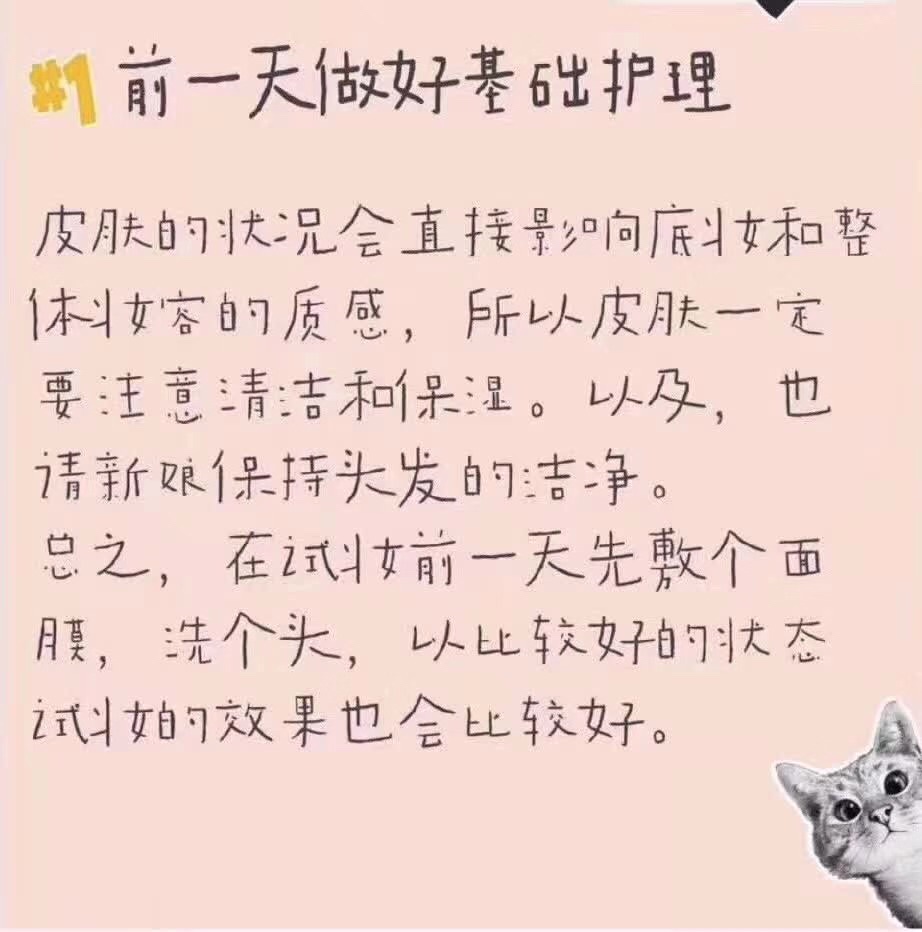 #1 前一天做好基础护理
皮肤的状况会直接影响底妆和整
体妆容的质感，所以皮肤一定
要注意清洁和保湿。以及，也
请新娘保持头发的洁净。
总之，在试妆前一天先敷个面
膜，洗个头，以比较好的状态
试妆的效果也会比较好。